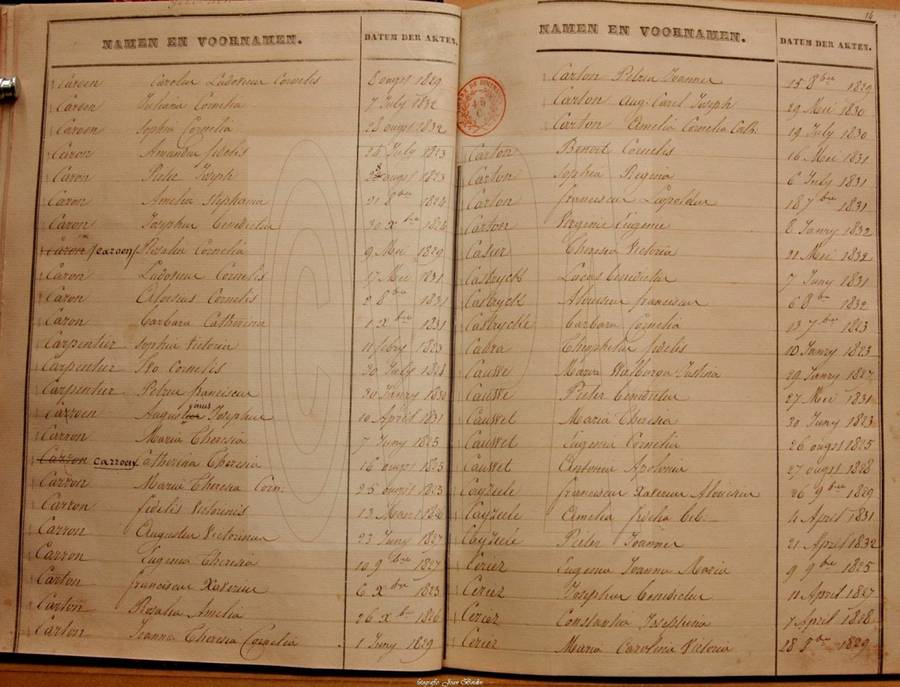 NAMEN EN VOORNAMEN. DATUM DER AKTEN.
Careen Carolus Ludovicus Cornelis 8 augst 1829
Careen Juliana Cornelia 7 July 1832
Careen Sophia Cornelia 28 augst 1832
Caron Amandus fidelis 24 July 1823
Caron Pieter Joseph augst 1823
Caron Amelia Stephania 21 8bre 1824
Caron Josephus Benedictus 20 Xbre 1826
Caron (caroen) Rosalia Cornelia 9 Mei 1829
Caron Ludovicus Cornelis 17 Mei 1831
Caron Aloesius Cornelis 2 8bre 1831
Caron Barbara Catherina 1 Xbre 1831
Carpentier Sophia Victoria 11 febry 1823
Carpentier Ivo Cornelis 20 July 1828
Carpentier Petrus franciscus 30 Janry 1830
Carroen Josephus 10 April 1831
Carron Maria Theresia 7 Juny 1825
Carron carroen Catherina Theresia 16 augst 1825
Carron Maria Theresia Corn: 25 augst 1825
Carron fidelis Victorinus 13 Maart 1826
Carron Augustus Victorinus 23 Juny 1827
Carron Eugenia Theresia 10 9bre 1827
Carton franciscus Xaverius 6 Xbre 1825
Carton Rosalia Amelia 26 Xbre 1826
Carton Joanna Theresia Cornelia 1 Juny 1829
14
NAMEN EN VOORNAMEN. DATUM DER AKTEN.
Carton Petrus Joannes 15 8bre 1829
Carton Aug: Carel Joseph 29 Mei 1830
Carton Amelia Cornelia Cath: 19 July 1830
Carton Benoit Cornelis 16 Mei 1831
Carton Sophia Regina 6 July 1831
Carton franciscus Leopoldus 18 7bre 1831
Cartoen Virginie Eugenie 8 Janry 1832
Casier Theresia Victoria 21 Mei 1832
Castryck Lucas benedictus 7 Juny 1831
Castryck Aloisius franciscus 6 8bre 1832
Castryckte barbara Cornelia 13 7bre 1823
Catra fidelis 10 Janry 1823
Cauwe Maria Walburga Justina 29 Janry 1827
Cauwe Pieter benedictus 27 Mei 1831
Cauwel Maria Theresia 20 Juny 1823
Cauwel Eugenia Cornelia 26 augst 1825
Cauwel Antonia Apolonia 27 augst 1828
Cayzeele franciscus Xaverius Aloisius 26 9bre 1829
Cayzeele Amelia 4 April 1831
Cayzeele Pieter Joannes 21 April 1832
Cerez Eugenia Joanna Maria 9 9bre 1825
Cerez Josephus benedictus 11 April 1827
Cerez Constantia Josephina 7 April 1828
Cerez Maria Carolina Victoria 28 9bre 1829
fotografie Joan Boden